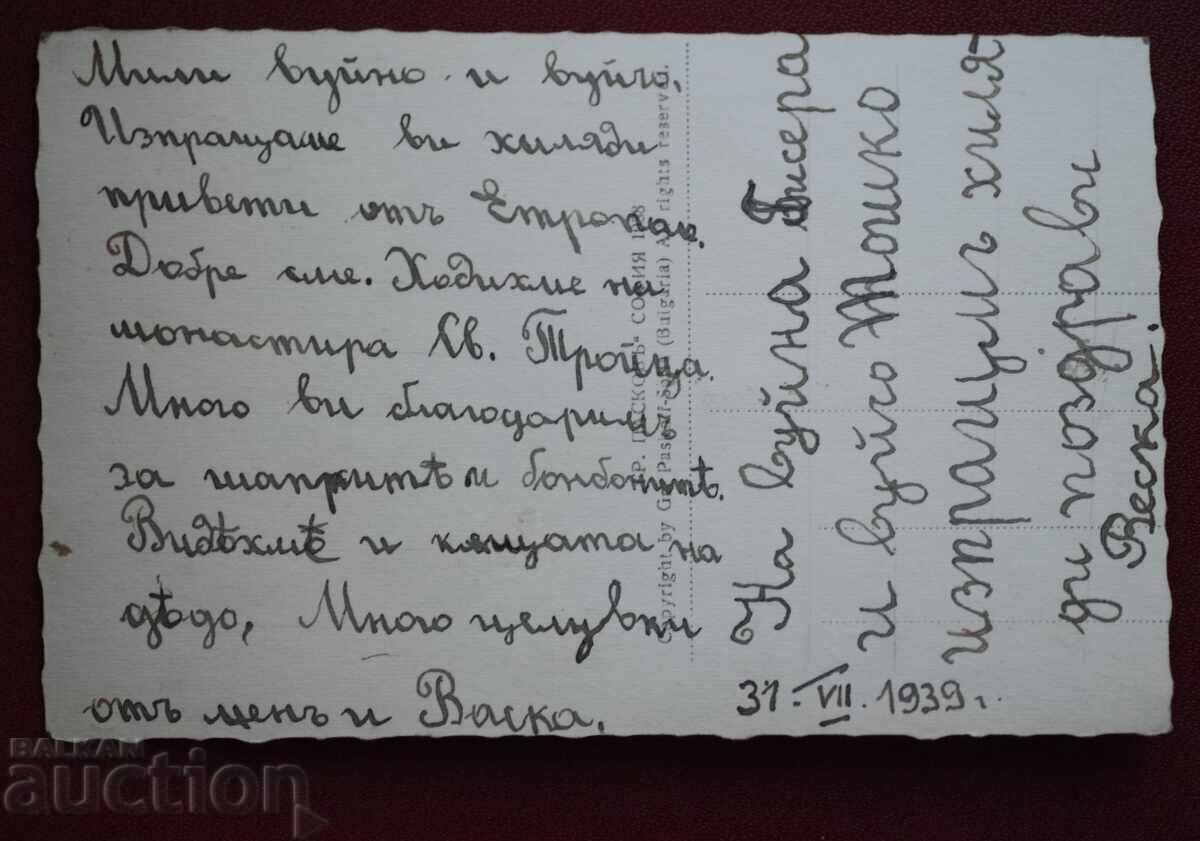 Мили вуйно и вуйчо,
Изпращаме ви хиляди
привети отъ Етрополе.
Добре сме. Ходихме на
монастира Св. Тройца.
Много ви благодаримъ
за шапкитѣ и бонбонитѣ.
Видѣхмѣ и кѫщата на
дѣдо, Много целувки
отъ менъ и Васка.
ГР. ПАСКОВЪ СОФИЯ
Copyright by Gr. Paskoff-Sofia (Bulgaria) All rights reserved.
На вуйна Бисера
и вуйчо Тошко
изпращамъ хиля
ди поздрави
Веска.
31. VII. 1939 г.
BALKAN
auction